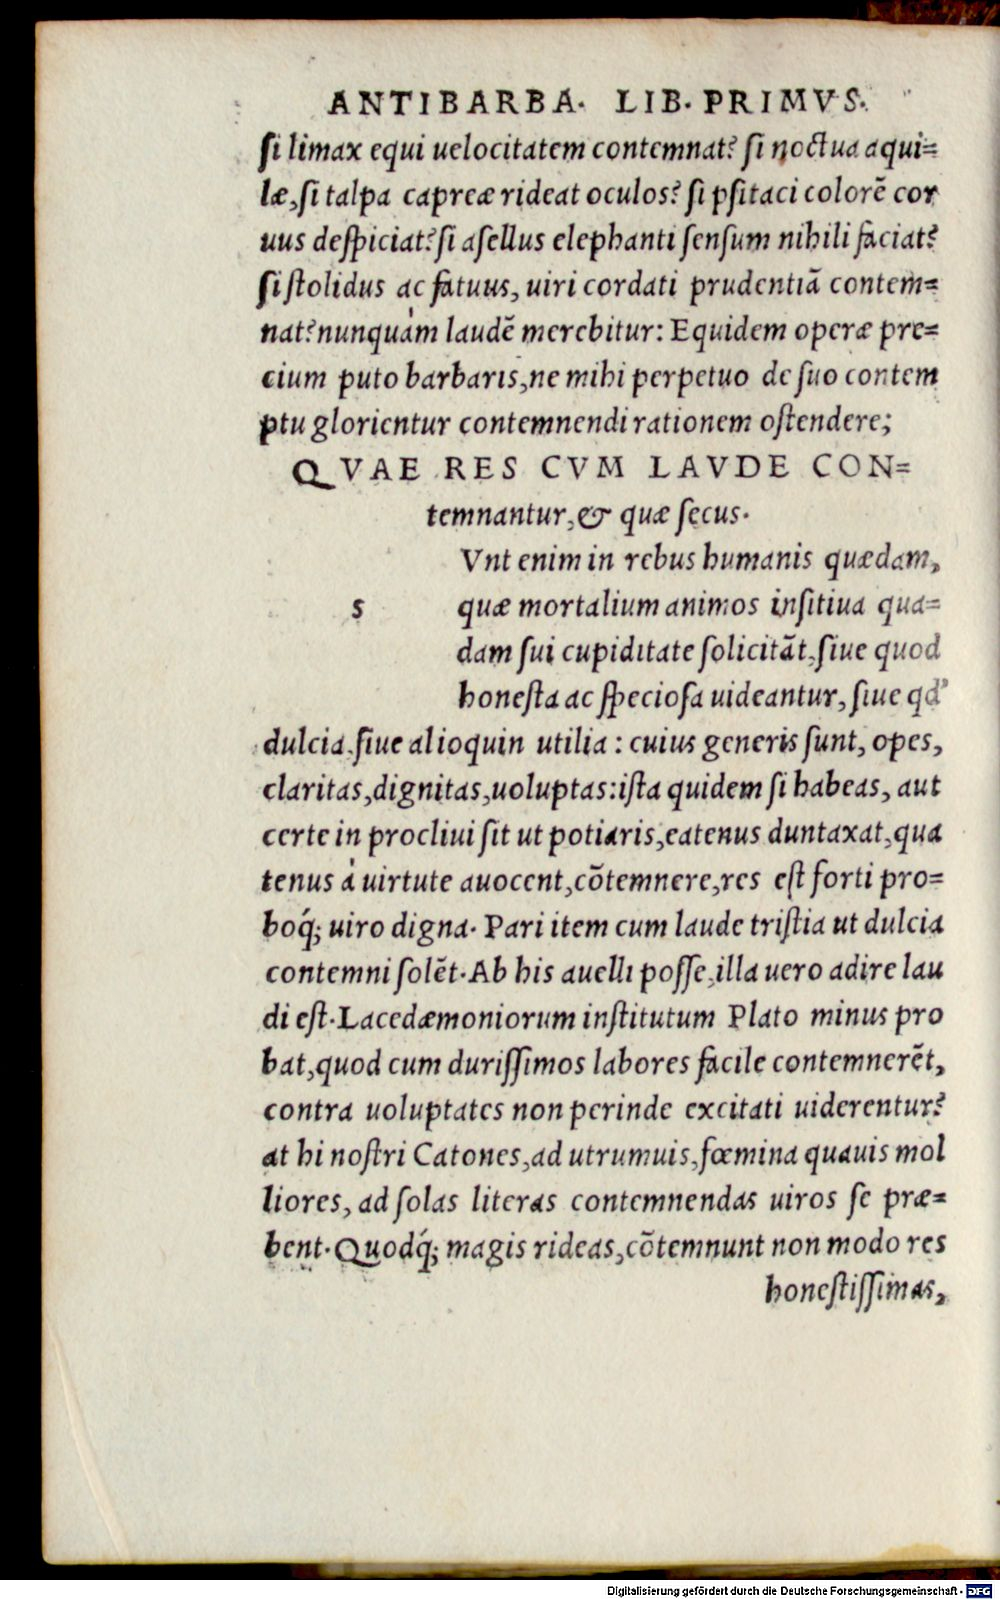 ANTIBARBA. LIB. PRIMVS.
ſi limax equi uelocitatem contemnat? ſi noctua aqui=
læ, ſi talpa capreæ rideat oculos? ſi pſitaci colorẽ cor
uus deſpiciat? ſi aſellus elephanti ſenſum nihili faciat?
ſi ſtolidus ac fatuus, uiri cordati prudentiã contem=
nat? nunquàm laudẽ merebitur: Equidem operæ pre=
cium puto barbaris, ne mihi perpetuo de ſuo contem
ptu glorientur contemnendi rationem oſtendere;
QVAE RES CVM LAVDE CON=
temnantur, & quæ ſecus.
Vnt enim in rebus humanis quædam,
s quæ mortalium animos inſitiua qua=
dam ſui cupiditate ſolicitãt, ſiue quod
honeſta ac ſpecioſa uideantur, ſiue qd'
dulcia. ſiue alioquin utilia: cuius generis ſunt, opes,
claritas, dignitas, uoluptas: iſta quidem ſi habeas, aut
certe in procliui ſit ut potiaris, eatenus duntaxat, qua
tenus à uirtute auocent, cõtemnere, res eſt forti pro=
boq́; uiro digna. Pari item cum laude triſtia ut dulcia
contemni ſolẽt. Ab his auelli poſſe, illa uero adire lau
di eſt. Lacedæmoniorum inſtitutum Plato minus pro
bat, quod cum duriſſimos labores facile contemnerẽt,
contra uoluptates non perinde excitati uiderentur?
at hi noſtri Catones, ad utrumuis, fœmina quauis mol
liores, ad ſolas literas contemnendas uiros ſe præ=
bent. Quodq́; magis rideas, cõtemnunt non modo res
honeſtiſſimas,
Digitalisierung gefördert durch die Deutsche Forschungsgemeinschaft - DFG